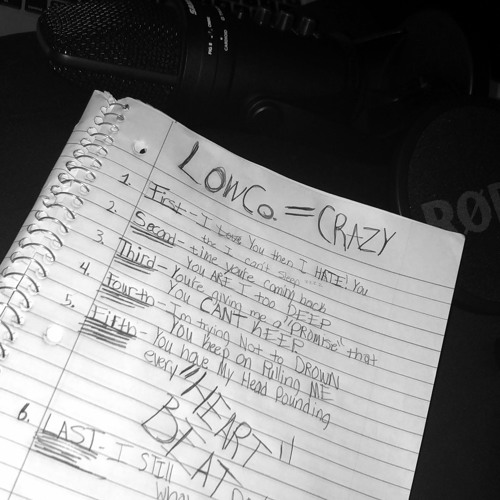 LOWCo. = CRAZY
1. First - I Love You then I HATE! You
the I can't stop
2. Second - time you're coming back
You ARE I too DEEP
3. Third - You're giving me a "PROMISE" that
You CANT KEEP.
4. Fourth - I'm trying Not to DROWN
You keep on Pulling ME
5. Fifth - You have My Head Pounding
every "HEART
BEAT
6. LAST - I STILL
RØDE